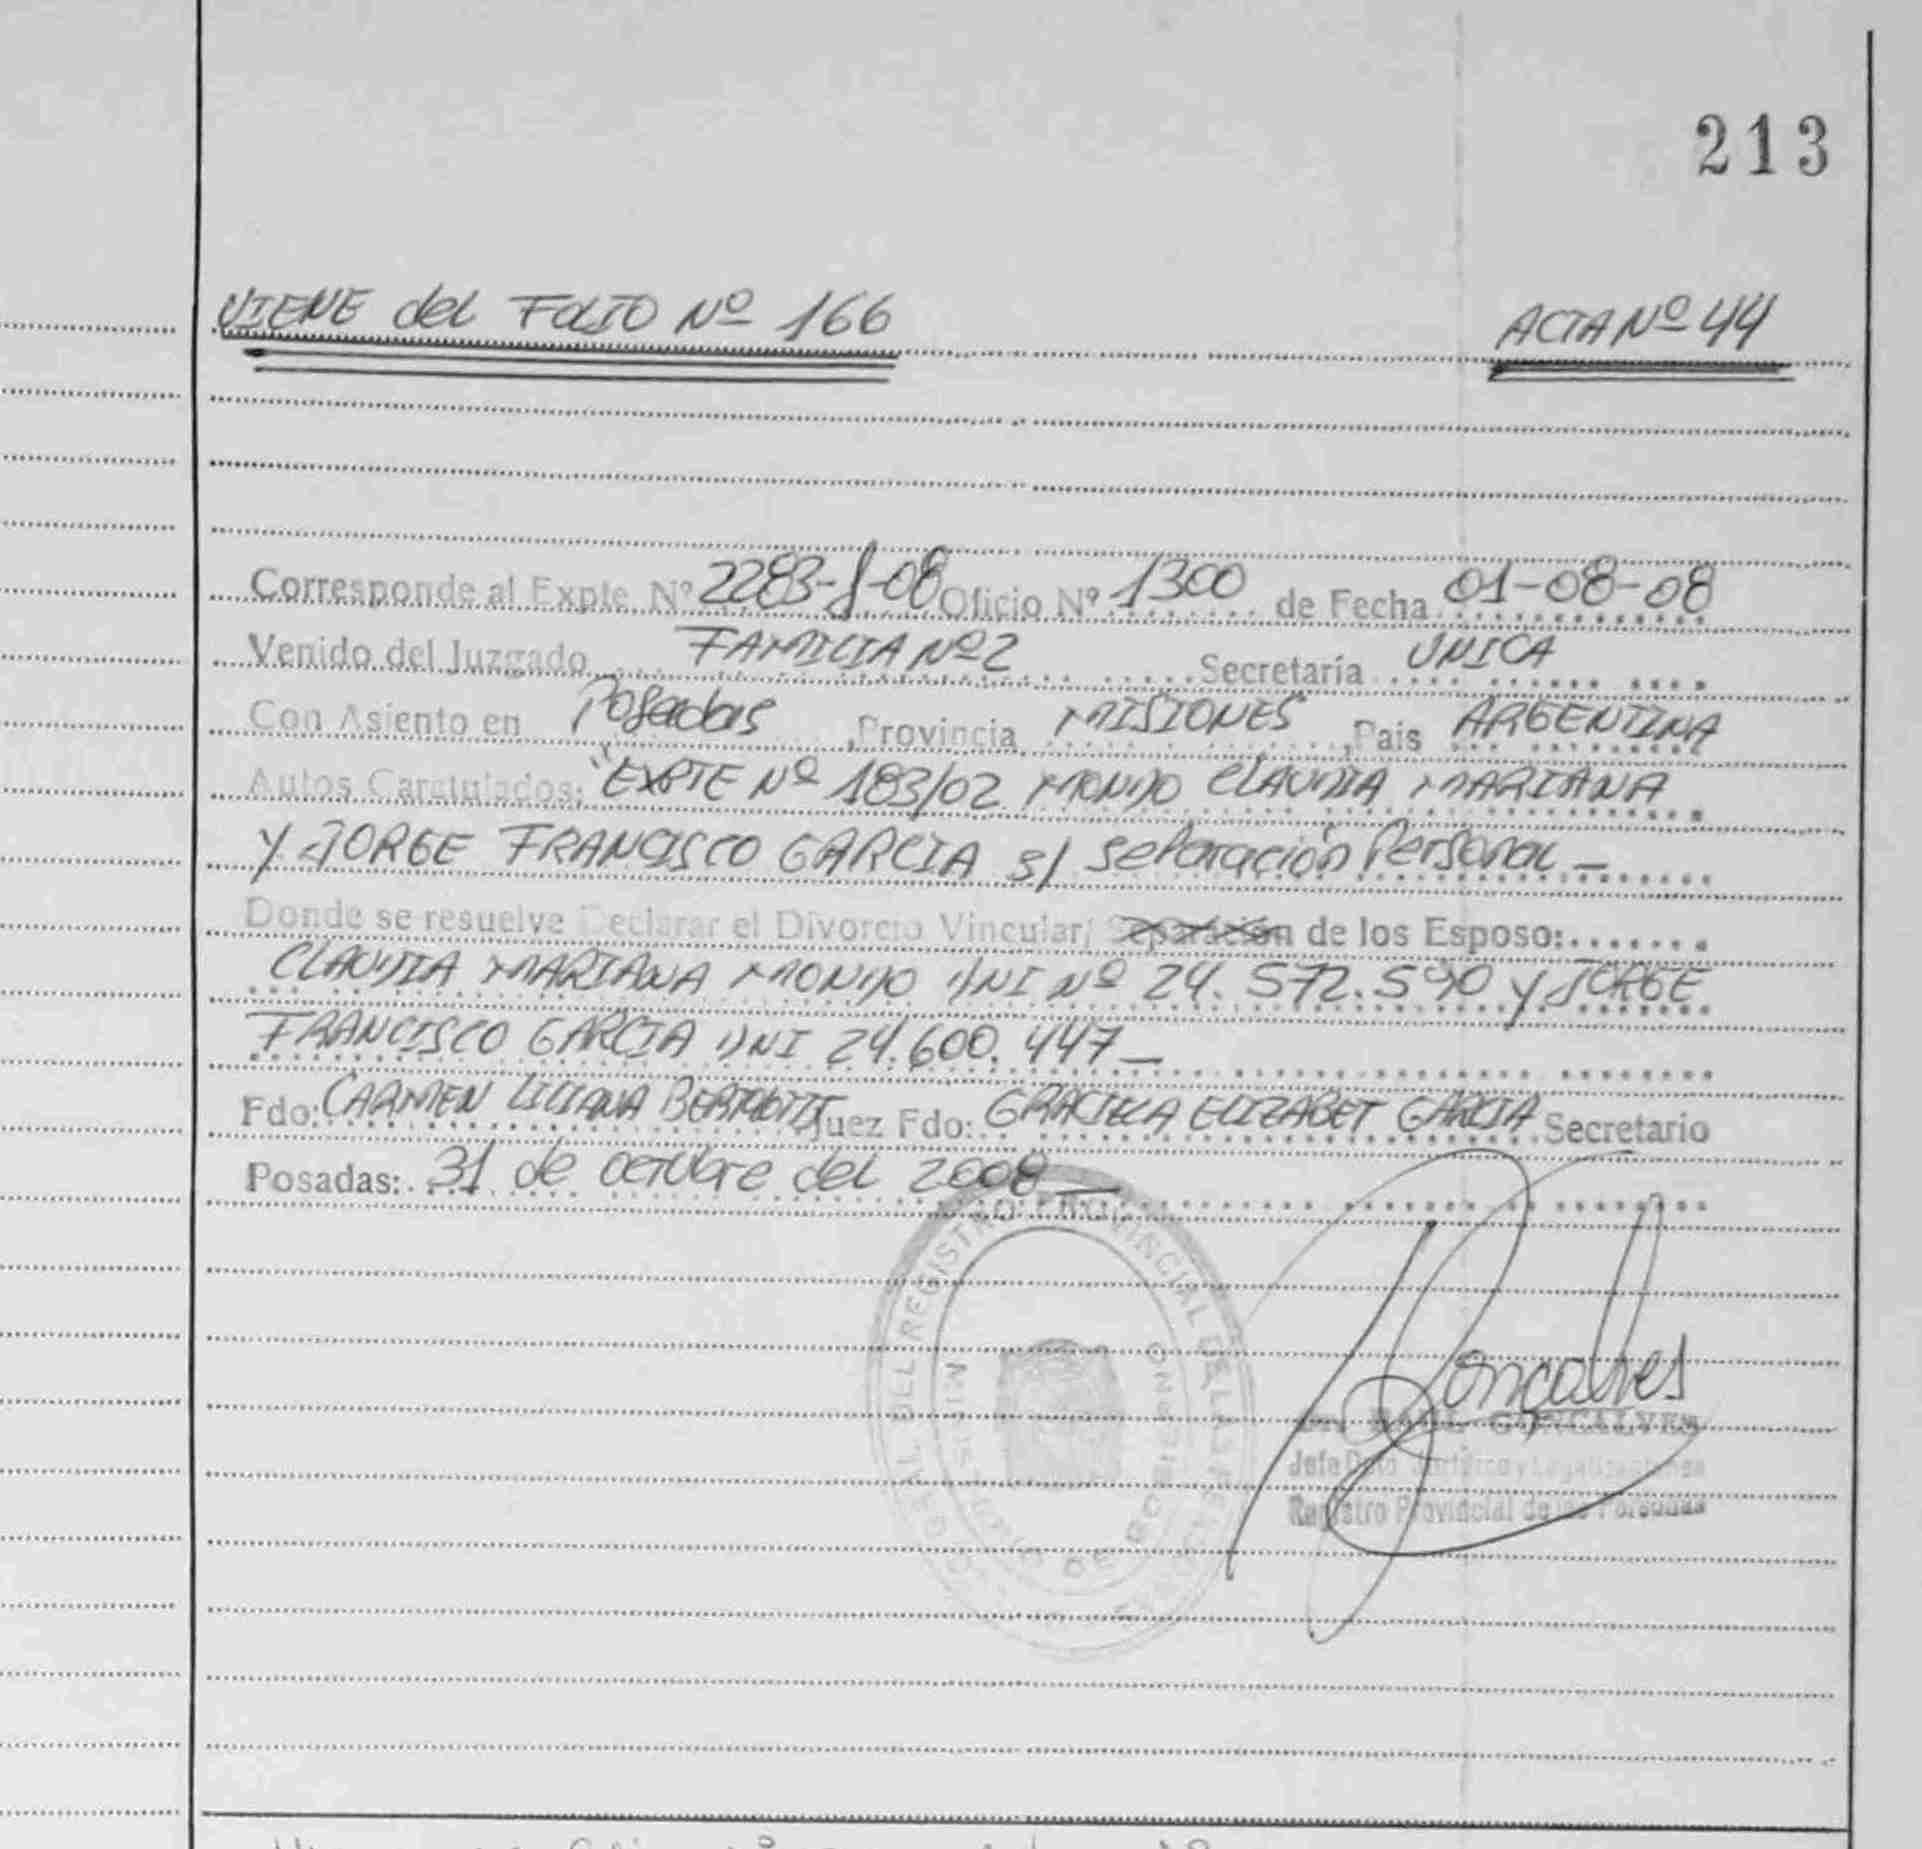 213
VIENE del FOLIO Nº 166 ACTA Nº 44
Corresponde al Expte Nº 2283-J-08 Oficio Nº 1300 de Fecha 01-08-08
Venido del Juzgado FAMILIA Nº 2 Secretaría UNICA
Con Asiento en Posadas, Provincia MISIONES, Pais ARGENTINA
Autos Caratulados: "EXPTE Nº 183/02 MONDO CLAUDIA MARIANA
Y JORGE FRANCISCO GARCIA s/ Separación Personal"_
Donde se resuelve Declarar el Divorcio Vincular/ Separación de los Esposo:
CLAUDIA MARIANA MONDO DNI Nº 24.572.590 y JORGE
FRANCISCO GARCIA DNI 24.600.447_
Fdo: CARMEN LILIANA Juez Fdo: GRACIELA ELIZABET GARCIA Secretario
Posadas: 31 de octubre del 2008_
REGISTRO PROVINCIAL DE LAS PERSONAS
MISIONES
Gonçalves
GONCALVES
Jefe Dpto Jurídico y Legalizaciones
Registro Provincial de las Personas